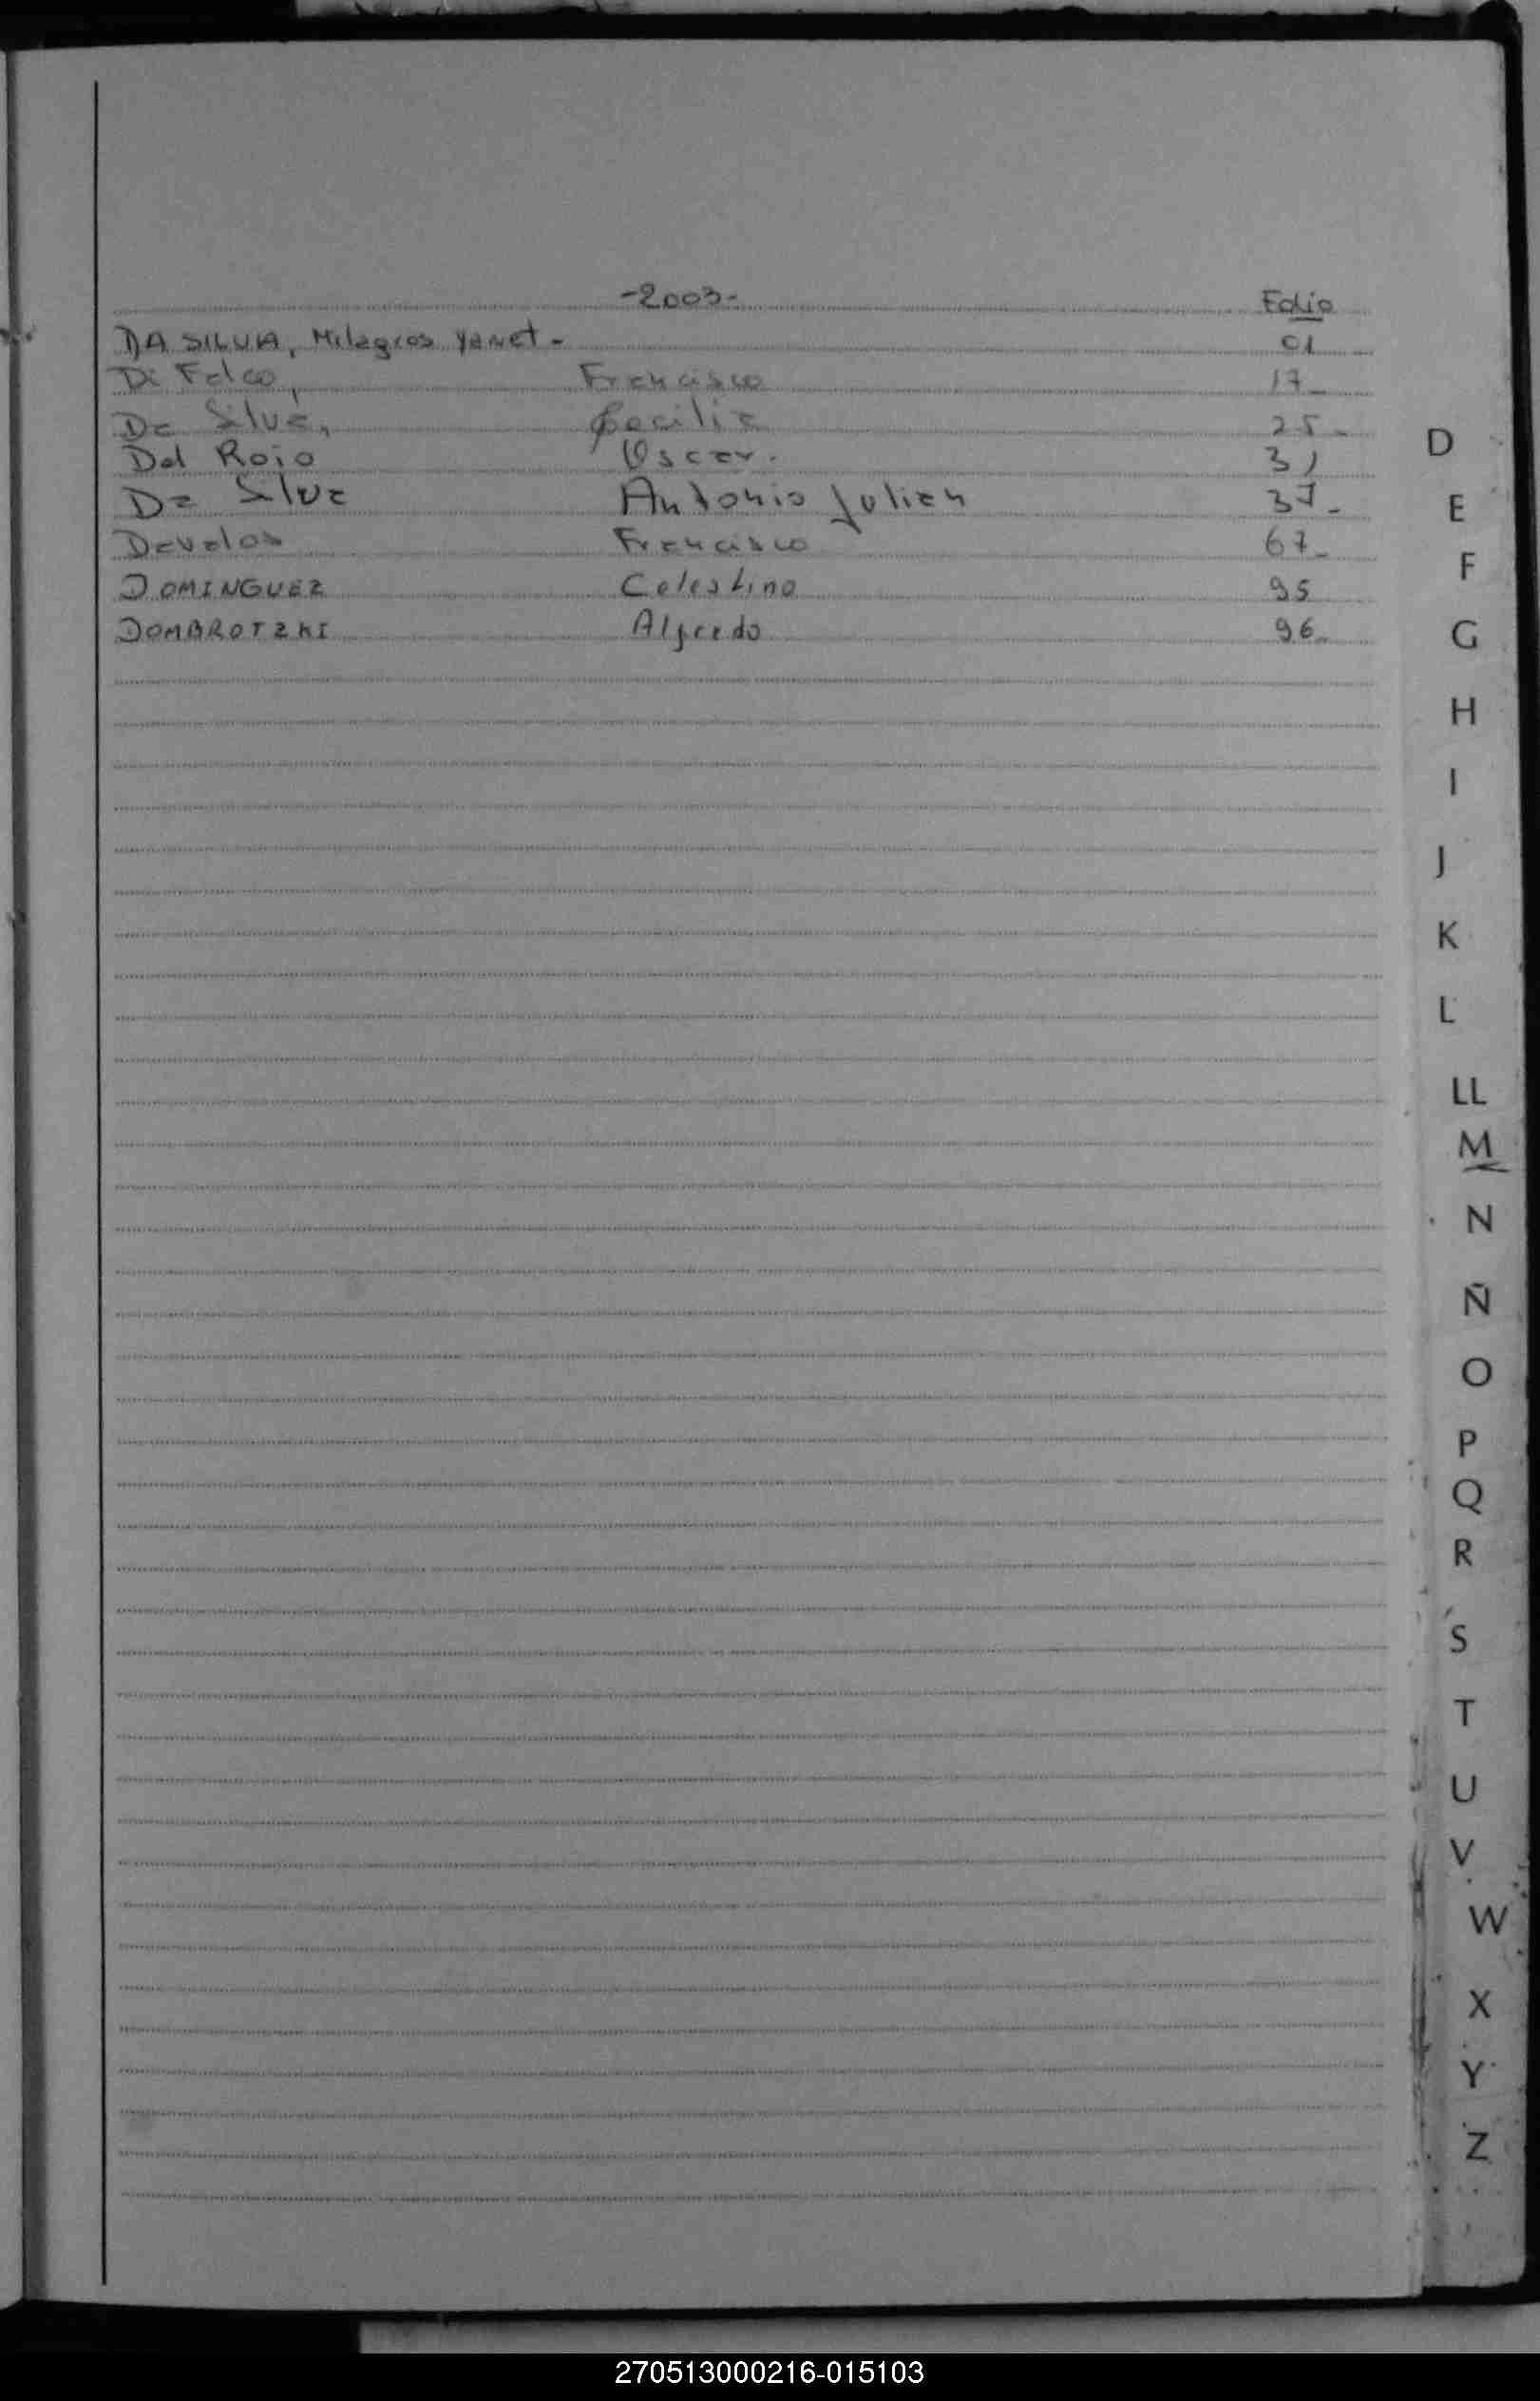 -2003-
Folio
DA SILVA, Milagros Yanet - 01
Di Falco, Francisco 17-
Da Silva, Cecilia 25-
Del Rojo Oscar. 31
Da Silva Antonio Julian 37-
Davalos Francisco 67-
DOMINGUEZ Celestino 95
DOMBROTZKI Alfredo 96-
D
E
F
G
H
I
J
K
L
LL
M
N
Ñ
O
P
Q
R
S
T
U
V
W
X
Y
Z
270513000216-015103